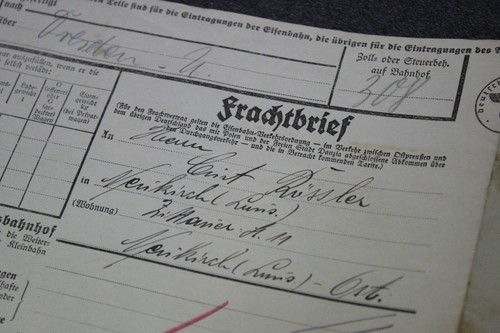 Teile sind für die Eintragungen der Eisenbahn, die übrigen für die Eintragungen des
nach
über
Dresden - N.
Zoll- oder Steuerbeh.
auf Bahnhof.
308
auszufüllen, wenn er die
selbst verlädt:
Frachtbrief
(Für den Frachtvertrag gelten die Eisenbahn-Verkehrsordnung — im Verkehr zwischen Ostpreußen und
dem übrigen Deutschland das mit Polen und der Freien Stadt Danzig abgeschlossene Abkommen über
den Durchgangsverkehr — und die in Betracht kommenden Tarife.)
An
Herrn
Curt Rössler
in Neukirch (Laus.)
(Wohnung)
Zittauer St. 11
Neukirch (Laus.) - Ost.
sbahnhof
die Weiter-
Kleinbahn
ungen